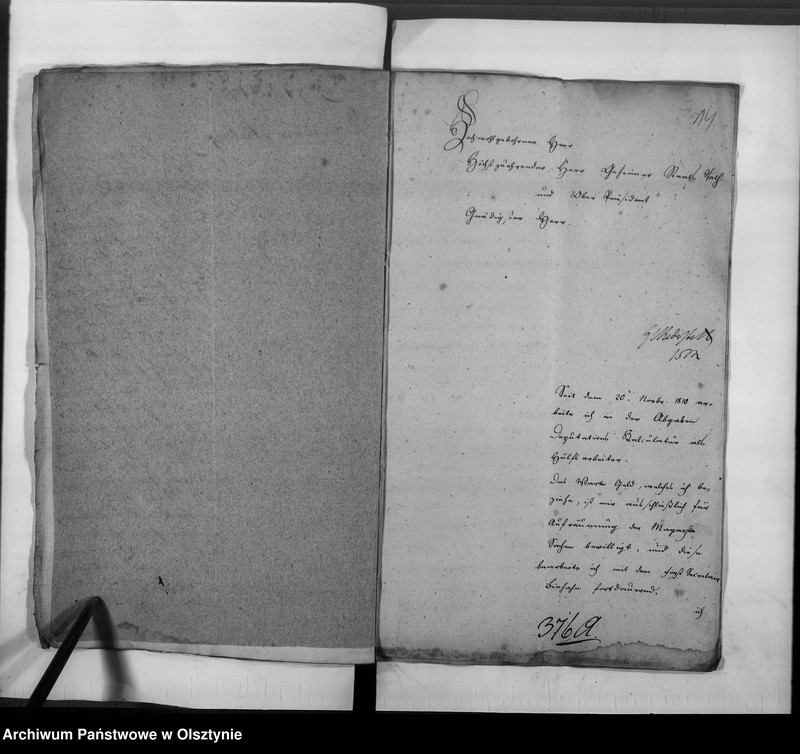 14
Hochwohlgebohrner Herr
Höchstzuehrender Herr Geheimer Staats Rath
und Ober Präsident
Gnädigster Herr.
Seit dem 20t Novbr 1810 ar-
beite ich in der Abgaben
Deputations Kalculatur als
Hülfsarbeiter.
Das Warte Geld, welches ich be-
ziehe, ist mir ausschließlich für
Aufräumung der Magazin
Sachen bewilligt, und diese
bearbeite ich mit dem Secretair
fortdauernd.
ich
376 A.
Archiwum Państwowe w Olsztynie